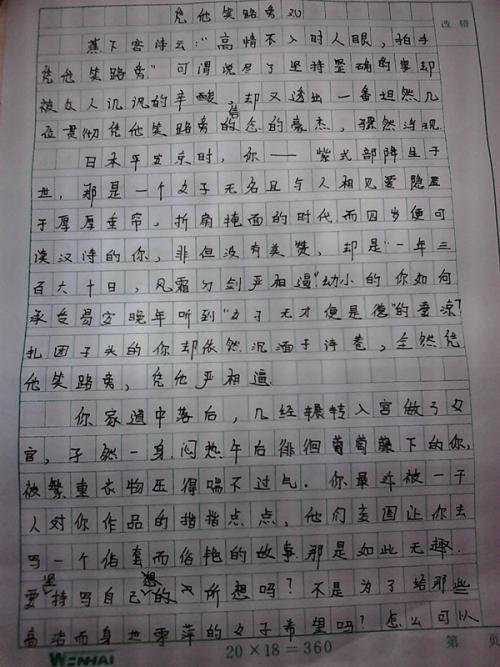 凭他笑路旁
改错
蕉下客诗云："高情不入时人眼，拍手
凭他笑路旁"可谓说尽了坚持正确的事却
被众人讥讽的辛酸，却又透出一番坦然几
位贯彻凭他笑路旁的信念的豪杰，骤然浮现
日本平安京时，你——紫式部降生于
世，那是一个女子无名且与人相见要隐匿
于厚厚垂帘，折扇掩面的时代.而四岁便可
读汉诗的你，非但没有美赞，却是"一年三
百六十日，风霜刀剑严相逼"幼小的你如何
承受易安晚年听到"女子无才便是德"的垂凉?
扎团子头的你却依然沉湎于诗卷，全然凭
他笑路旁，凭他严相逼.
你家道中落后，几经辗转入宫做了女
官，孑然一身.闷热午后徘徊葡萄藤下的你，
被繁重衣物压得喘不过气.你最近被一干
人对你作品的指指点点，他们妄图让你去
写一个俗套而俗艳的故事.那是如此无趣.
要坚持写自己的所想吗？不是为了给那些
高洁而身世零萍的女子希望吗？怎么可以
WENHAI
20×18=360
第 页